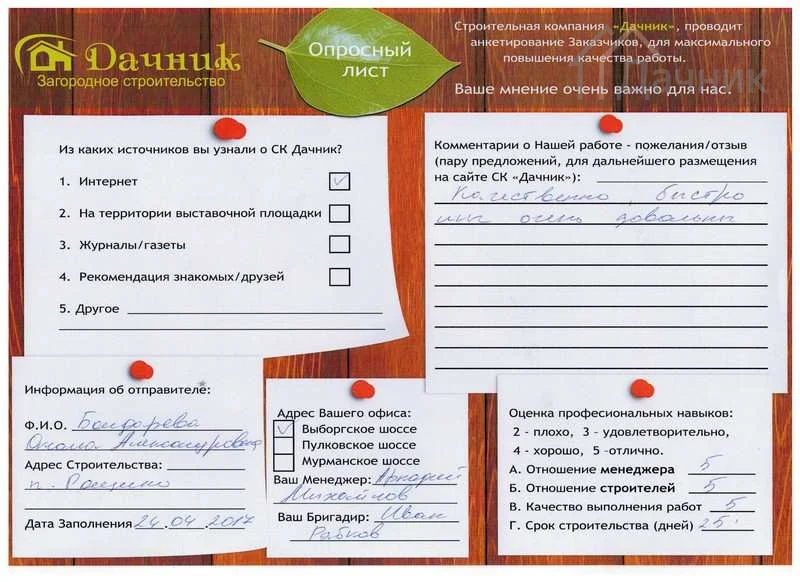 Дачник
Загородное строительство
Опросный
лист
Строительная компания «Дачник», проводит
анкетирование Заказчиков, для максимального
повышения качества работы.
Ваше мнение очень важно для нас.
Дачник
Из каких источников вы узнали о СК Дачник?
1. Интернет
2. На территории выставочной площадки
3. Журналы/газеты
4. Рекомендация знакомых/друзей
5. Другое
Комментарии о Нашей работе - пожелания/отзыв
(пару предложений, для дальнейшего размещения
на сайте СК «Дачник»):
Качественно, быстро
мы очень довольны
Информация об отправителе:
Ф.И.О. Бондарева
Александровна
Адрес Строительства:
п. Рощино
Дата Заполнения 24.04.2017
Адрес Вашего офиса:
Выборгское шоссе
Пулковское шоссе
Мурманское шоссе
Ваш Менеджер: Аркадий
Михайлов
Ваш Бригадир: Иван
Рабков
Оценка професиональных навыков:
2 - плохо, 3 - удовлетворительно,
4 - хорошо, 5 -отлично.
А. Отношение менеджера 5
Б. Отношение строителей 5
В. Качество выполнения работ 5
Г. Срок строительства (дней) 25